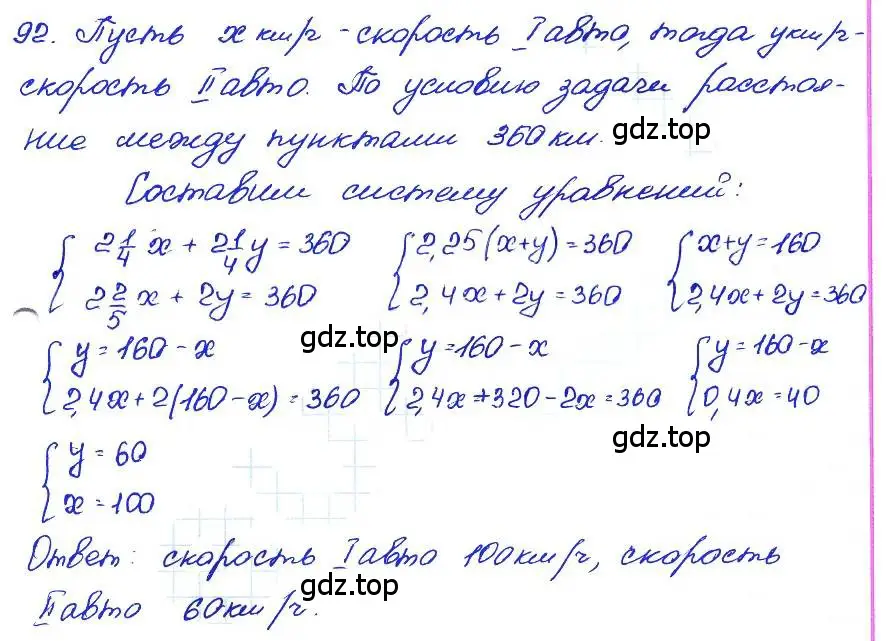 92. Пусть x км/ч - скорость I авто, тогда y км/ч -
скорость II авто. По условию задачи расстоя-
ние между пунктами 360 км. gdz.top
Составим систему уравнений:
{ 2 1/4 x + 2 1/4 y = 360 { 2,25(x+y) = 360 { x+y = 160
{ 2 2/5 x + 2y = 360 { 2,4x + 2y = 360 { 2,4x + 2y = 360
gdz.top
{ y = 160 - x { y = 160 - x { y = 160 - x
{ 2,4x + 2(160 - x) = 360 { 2,4x + 320 - 2x = 360 { 0,4x = 40
gdz.top
{ y = 60
{ x = 100
Ответ: скорость I авто 100 км/ч, скорость
II авто 60 км/ч. gdz.top